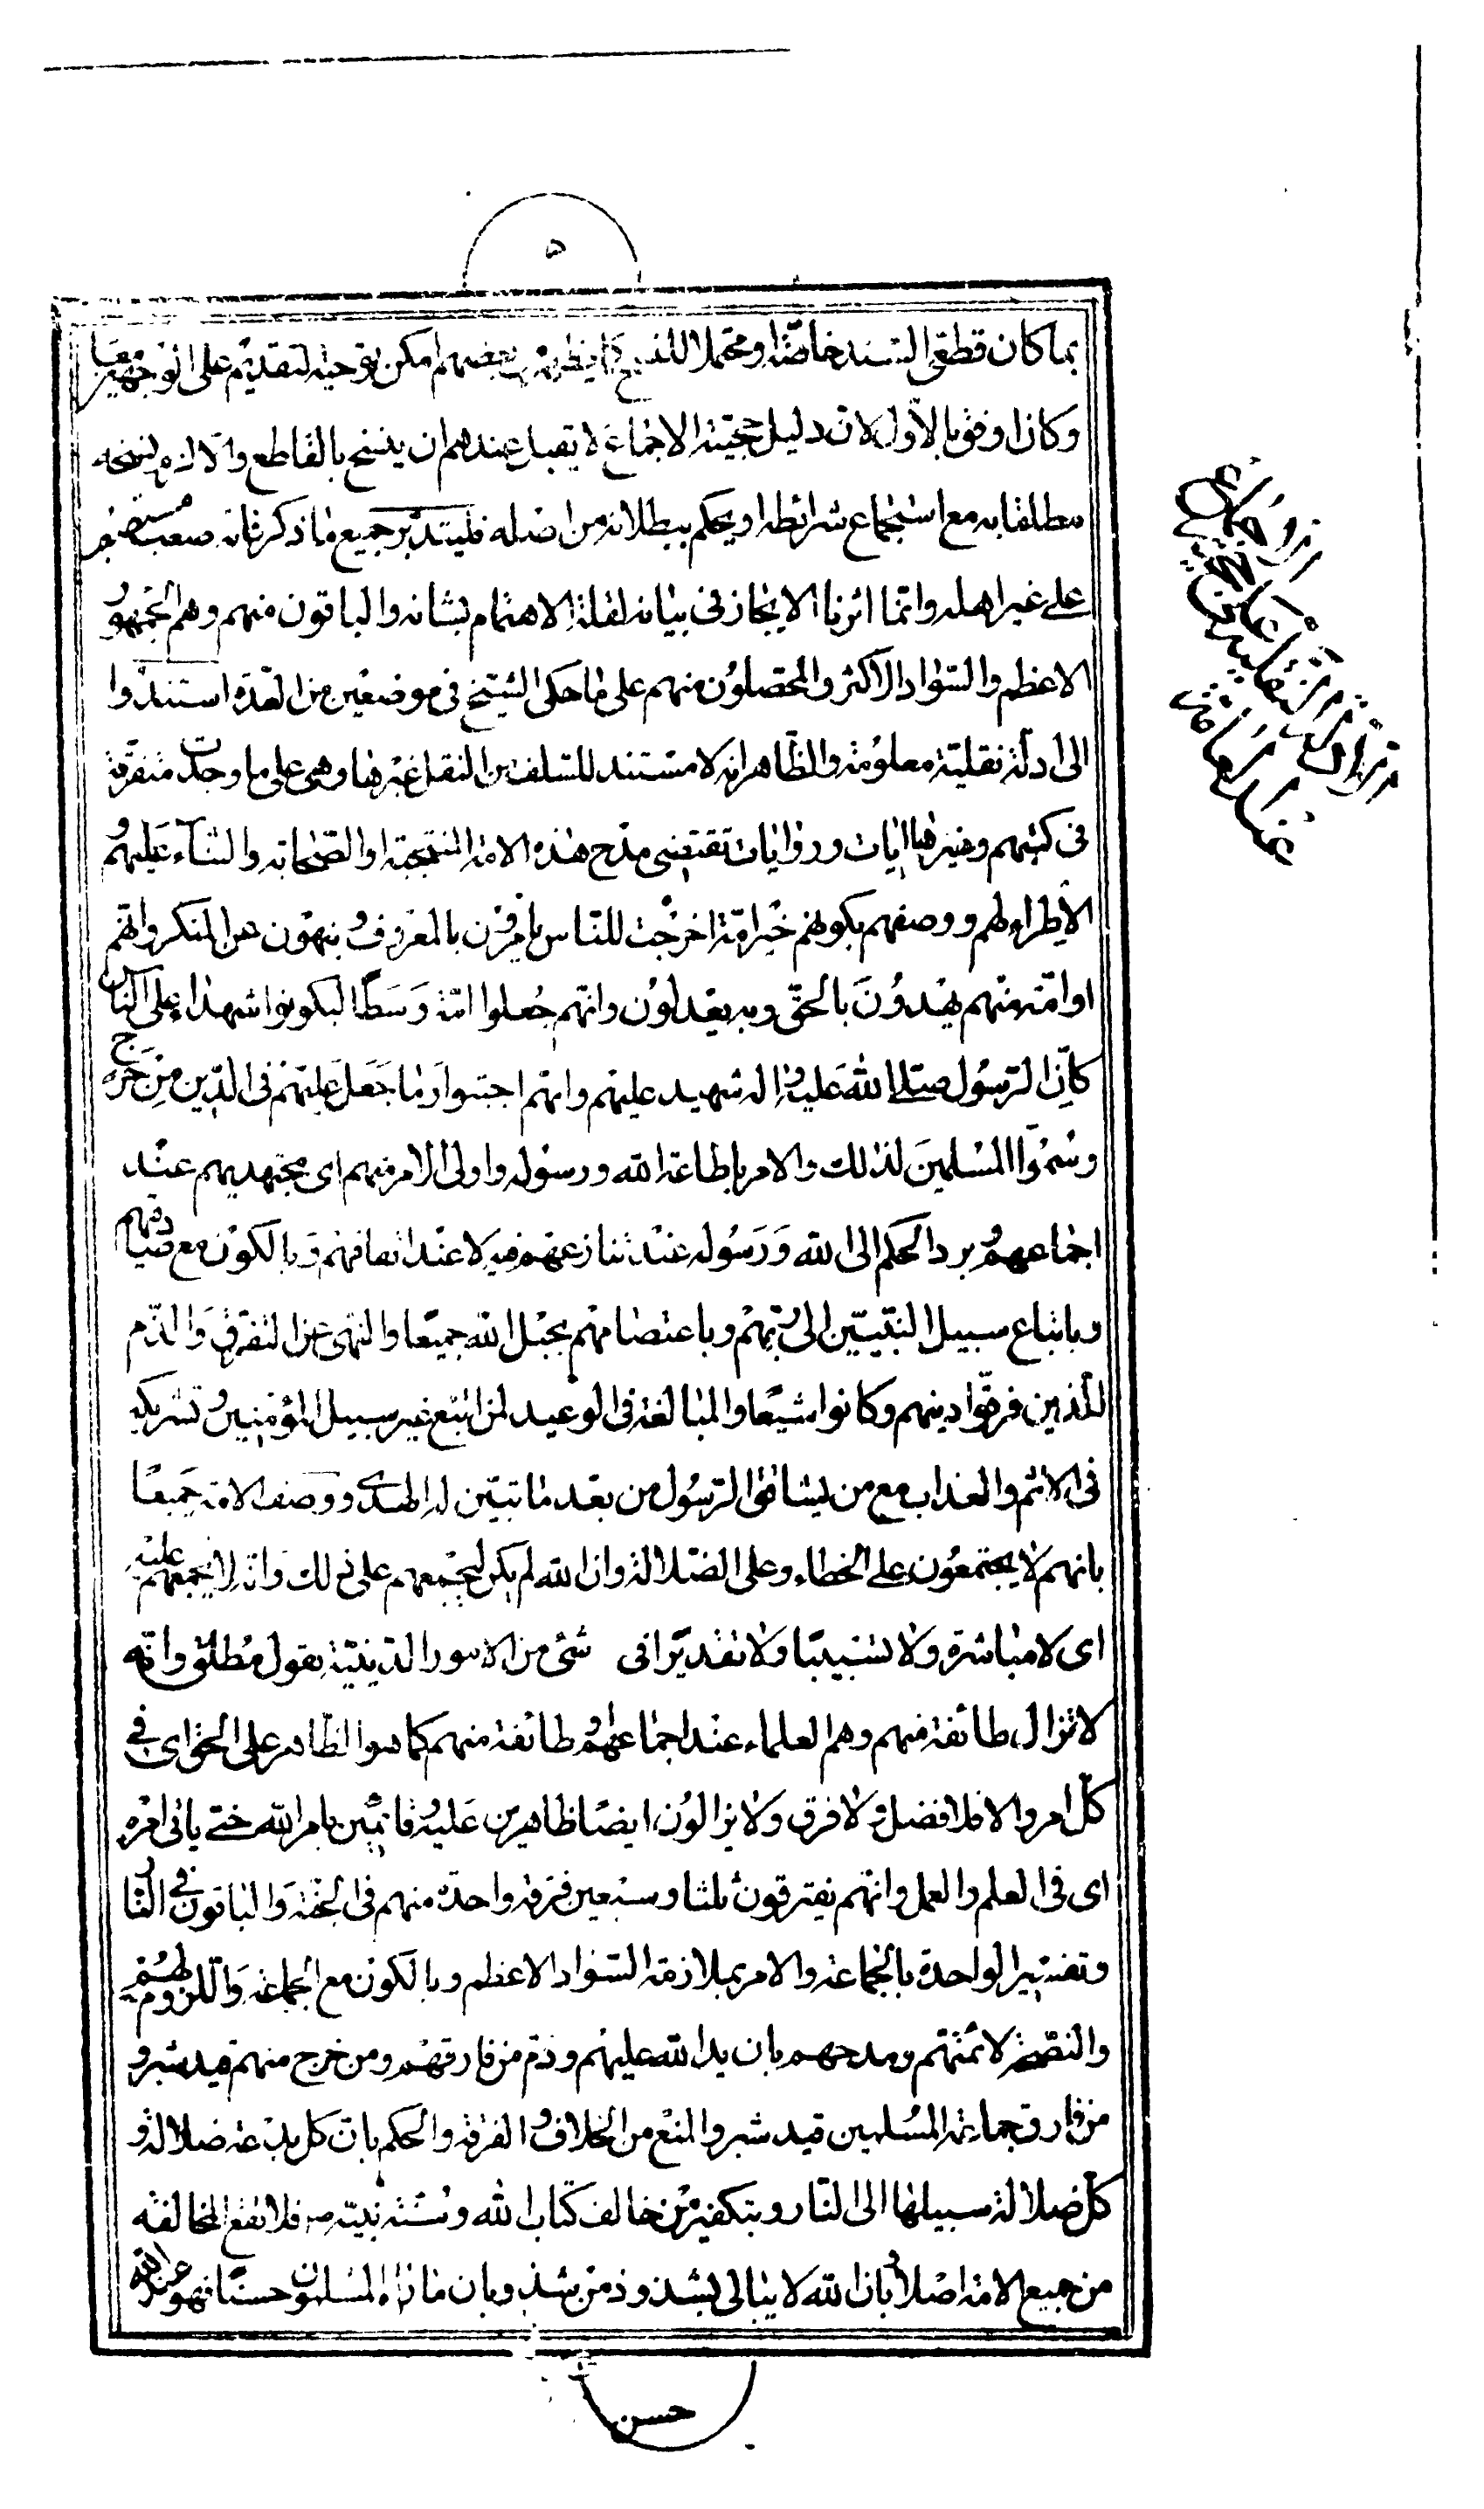 ۵
بما كان قطعى السند خاصّة او محتملا للنسخ كما يظهر من بعضهم امكن توجيه التقديم على الوجهين معا
وكان اوفق بالاول لان دليل حجية الاجماع لا يقبل عندهم ان ينسخ بالقاطع والا لزم نسخه
مطلقا به مع استجماع شرائطه او يحكم ببطلانه من اصله فليتدبر جميع ما ذكر فانه صعب مستصعب
على غير اهله وانما اثرنا الايجاز فى بيانه لقلة الاهتمام بشانه والباقون منهم وهم الجمهور
الاعظم والسواد الاكثر والمحصلون منهم على ما حكى الشيخ فى موضعين من العدة استندوا
الى ادلة نقلية معلومة والظاهر انه لا مستند للسلف من النقل غيرها وهى على ما وجدت متفرقة
فى كتبهم وغيرها ايات وروايات تقتضى مدح هذه الامة المنتجبة او الصحابة والثناء عليهم و
الاطراء لهم ووصفهم بكونهم خير امة اخرجت للناس يامرون بالمعروف وينهون عن المنكر وانهم
او امة منهم يهدون بالحق وبه يعدلون وانهم جعلوا امّة وَسَطًا ليكونوا شهداء على الناس
كما ان الرسول صلى الله عليه واله شهيد عليهم وانهم اجتبوا وما جعل عليهم فى الدين من حرج
وسُمّوا المسلمين لذلك والامر باطاعة الله ورسوله واولى الامر منهم اى مجتهديهم عند
اجماعهم وبرد الحكم الى الله وَرَسُوله عند تنازعهم فيه لا عند اتفاقهم وبالكون مع صادقيهم
وباتباع سبيل المنيبين الى ربهم وباعتصامهم بحبل الله جميعا والنهى عن التفرق والذم
للذين فرقوا دينهم وكانوا شيعًا والمبالغة فى الوعيد لمن اتبع غير سبيل المؤمنين وتشريكه
فى الاثم والعذاب مع من يشاقق الرسول من بعد ما تبين له الهدى ووصف الامة جميعًا
بانهم لا يجتمعون على الخطاء وعلى الضلالة وان الله لم يكن ليجمعهم على ذلك وانه لا يجمعهم عليه
اى لا مباشرة ولا تسبيبًا ولا تقديرًا فى شئ من الامور الدينية بقول مطلق وانه
لا تزال طائفة منهم وهم العلماء عند اجماعهم او طائفة منهم كما هو الظاهر على الحق اى فى
كل امر والا فلا فضل ولا فرق ولا يزالون ايضًا ظاهرين عليه وقائمين بامر الله حتى ياتى امره
اى فى العلم والعمل وانهم يفترقون ثلثا وسبعين فرقة واحدة منهم فى الجنة والباقون فى النار
وتفسير الواحدة بالجماعة والامر بملازمة السواد الاعظم وبالكون مع الجماعة واللزوم لهم
والنصح لائمتهم ومدحهم بان يد الله عليهم وذم من فارقهم ومن خرج منهم قيد شبر و
من فارق جماعة المسلمين قيد شبر والمنع من الخلاف والفرقة والحكم بان كل بدعة ضلالة و
كل ضلالة سبيلها الى النار وبتكفير من خالف كتاب الله وسنة نبيه ص فلا تقع المخالفة
من جميع الامة اصلا وبان الله لا يبالى بشذوذ من شذ وبان ما راه المسلمون حسنًا فهو عند الله
حسن